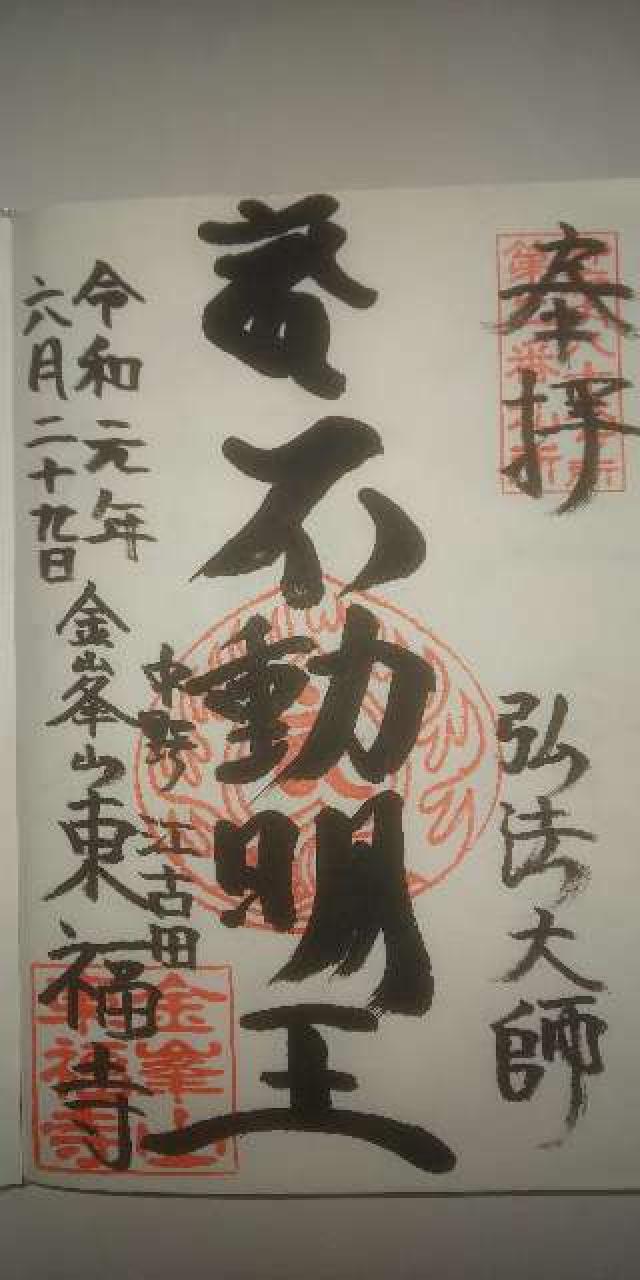 奉拝
弘法大師
不動明王
中野 江古田
金峯山東福寺
令和元年
六月二十九日
金峯山
東福寺